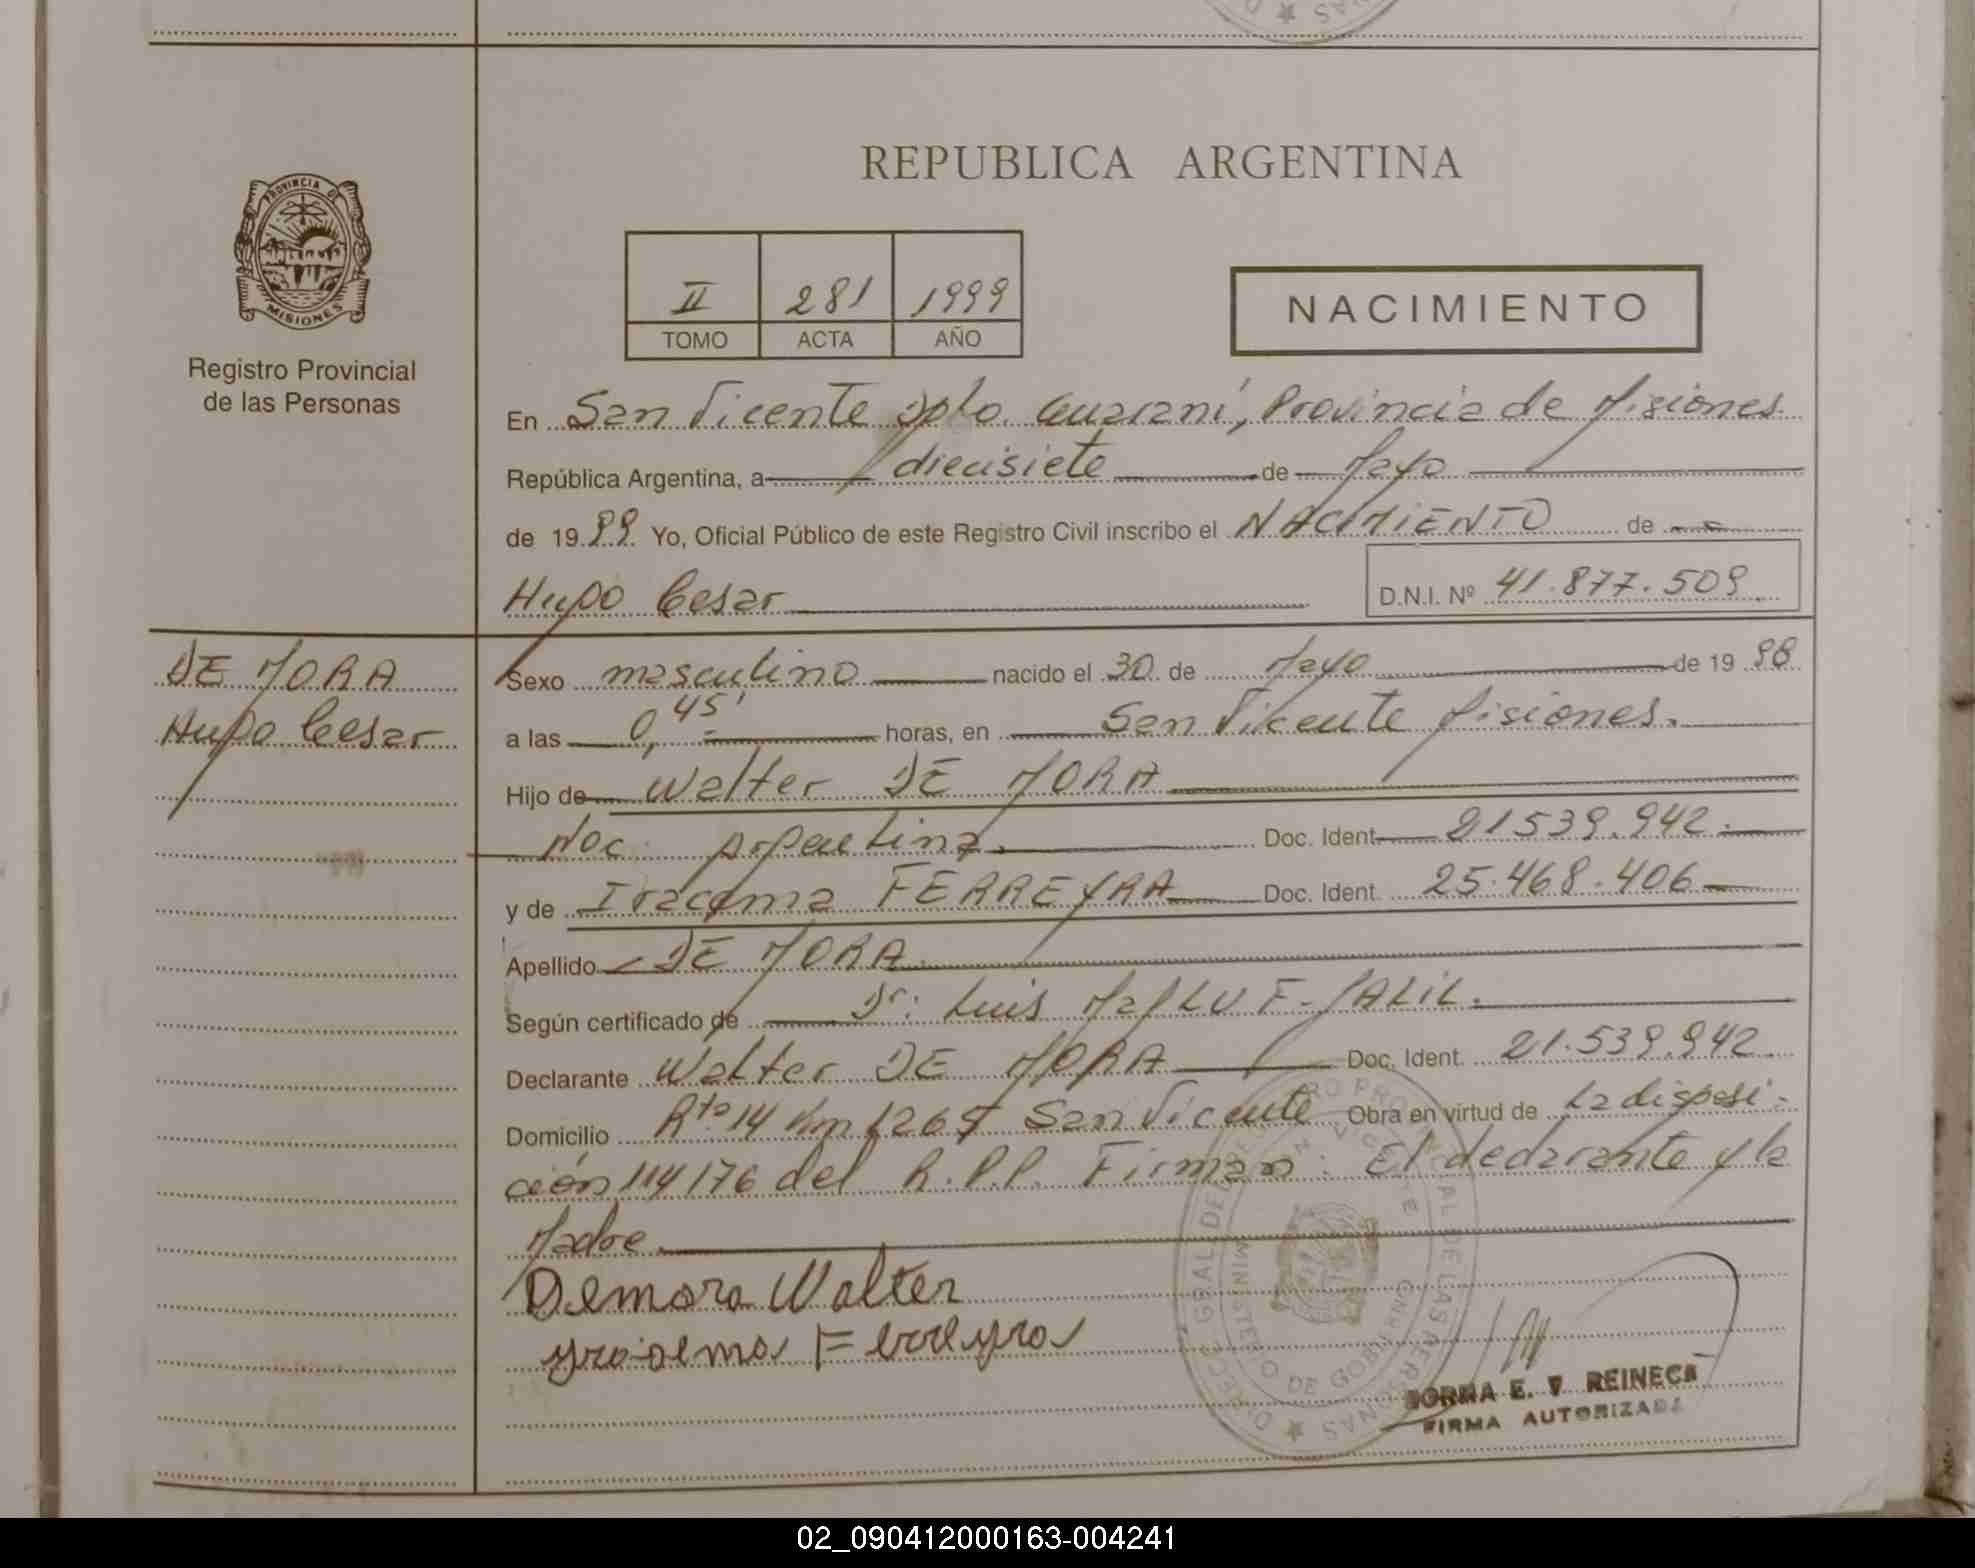 PROVINCIA DE
MISIONES
Registro Provincial
de las Personas
REPUBLICA ARGENTINA
II 281 1999
TOMO ACTA AÑO
NACIMIENTO
En San Vicente Dpto. Guaraní, Provincia de Misiones
República Argentina, a diecisiete de Mayo
de 1999 Yo, Oficial Público de este Registro Civil inscribo el NACIMIENTO de
Hugo Cesar D.N.I. Nº 41.877.509
DE MORA
Hugo Cesar
Sexo masculino nacido el 30 de Mayo de 1998
a las 0,45' horas, en San Vicente Misiones.
Hijo de Walter DE MORA
Nac. Argentina. Doc. Ident 21539.942.
y de Iracema FERREYRA Doc. Ident. 25.468.406
Apellido DE MORA
Según certificado de Dr: Luis JALIL.
Declarante Walter DE MORA Doc. Ident. 21.539.942
Domicilio Rta 14 Km 1265 San Vicente Obra en virtud de La disposi-
ción 114/76 del R.P.P. Firman: El declarante y la
Madre
Demora Walter
Ferreyra
NORMA E. V REINECK
FIRMA AUTORIZADA
02_090412000163-004241